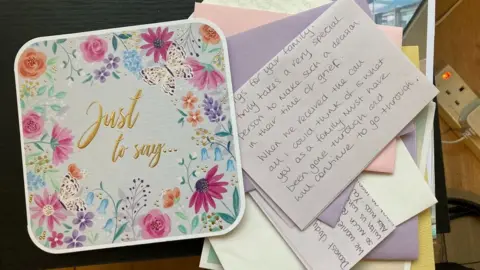 Just
to say...
go for your family.
truly takes a very special
person to make such a decision
in their time of grief.
When we received the call
all I could think of is what
you as a family must have
been gone through and
will continue to go through.
Dearest